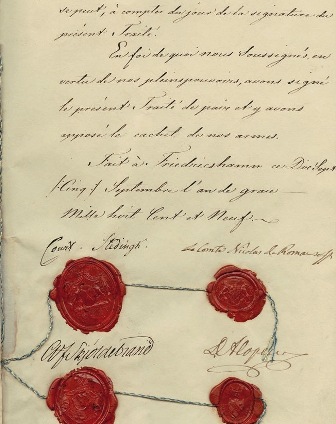 se peut, à compter du jour de la signature du
présent Traité.
En foi de quoi nous soussignés, en
vertu de nos pleinspouvoirs, avons signé
le présent Traité de paix et y avons
apposé le cachet de nos armes.
Fait à Friedricshamm ce Dix Sept
[Cinq] Septembre l'an de grace
Mille huit Cent et Neuf.
Court Stedingk
Le Comte Nicolas de Romanzoff
Skjöldebrand
D. Alopeus